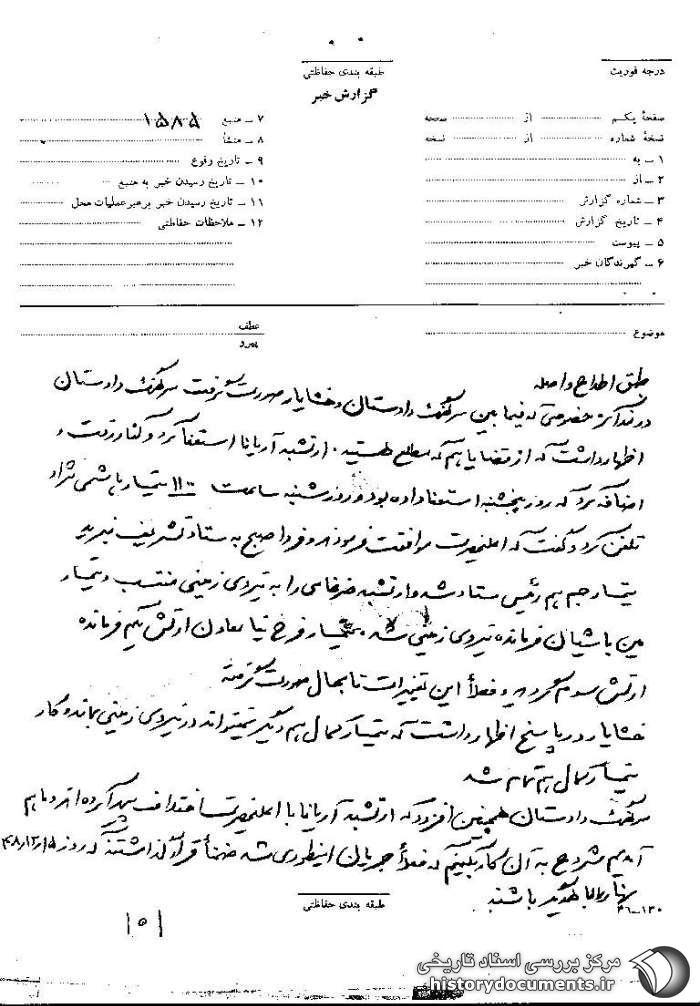 درجه فوریت
طبقه بندی حفاظتی
گزارش خبر
صفحهٔ یکم از صفحه
نسخهٔ شماره از نسخه
۱ ــ به
۲ ــ از
۳ ــ شماره گزارش
۴ ــ تاریخ گزارش
۵ ــ پیوست
۶ ــ گیرندگان خبر
۷ ــ منبع ۱۵۸۵
۸ ــ منشأ
۹ ــ تاریخ وقوع
۱۰ ــ تاریخ رسیدن خبر به منبع
۱۱ ــ تاریخ رسیدن خبر برهبر عملیات محل
۱۲ ــ ملاحظات حفاظتی
موضوع
عطف
پیرو
طبق اطلاع واصله
در مذاکره خصوصی که فیما بین سرهنگ دادستان و خشایار صورت گرفت سرهنگ دادستان
اظهار داشت که از قضایا هم که مطلع هستید. ارتشبد آریانا استعفا کرد و کنار رفت و
اضافه کرد که روز پنجشنبه استعفا داده بود و روز شنبه ساعت ۱۱۰۰ تیمسار هاشمی نژاد
تلفن کرد و گفت که اعلیحضرت موافقت فرمودند و فردا صبح به ستاد تشریف نبرید
تیمسار جم هم رئیس ستاد شد و ارتشبد ضرغامی را به نیروی زمینی منتسب و تیمسار
مین باشیان فرمانده نیروی زمینی شد، تیمسار فرخ نیا معاون ارتش یکم فرمانده
ارتش سوم گردید و فعلاً این تغییرات تا بحال صورت گرفته
خشایار در پاسخ اظهار داشت که تیمسار کمال هم دیگر نمیتواند در نیروی زمینی بماند و کار
تیمسار کمال هم تمام شد
سرهنگ دادستان همچنین افزود که ارتشبد آریانا با اعلیحضرت اختلاف پیدا کرده اند و ما هم
آمدیم شروع به آن کار بکنیم که فعلاً جریان اینطوری شد ضمناً قرار گذاشتند که روز ۴۸/۲/۱۵
نهار را با هم باشند
طبقه بندی حفاظتی
۳۶ــ۱۳۰
۱۵۱
مرکز بررسی اسناد تاریخی
historydocuments.ir